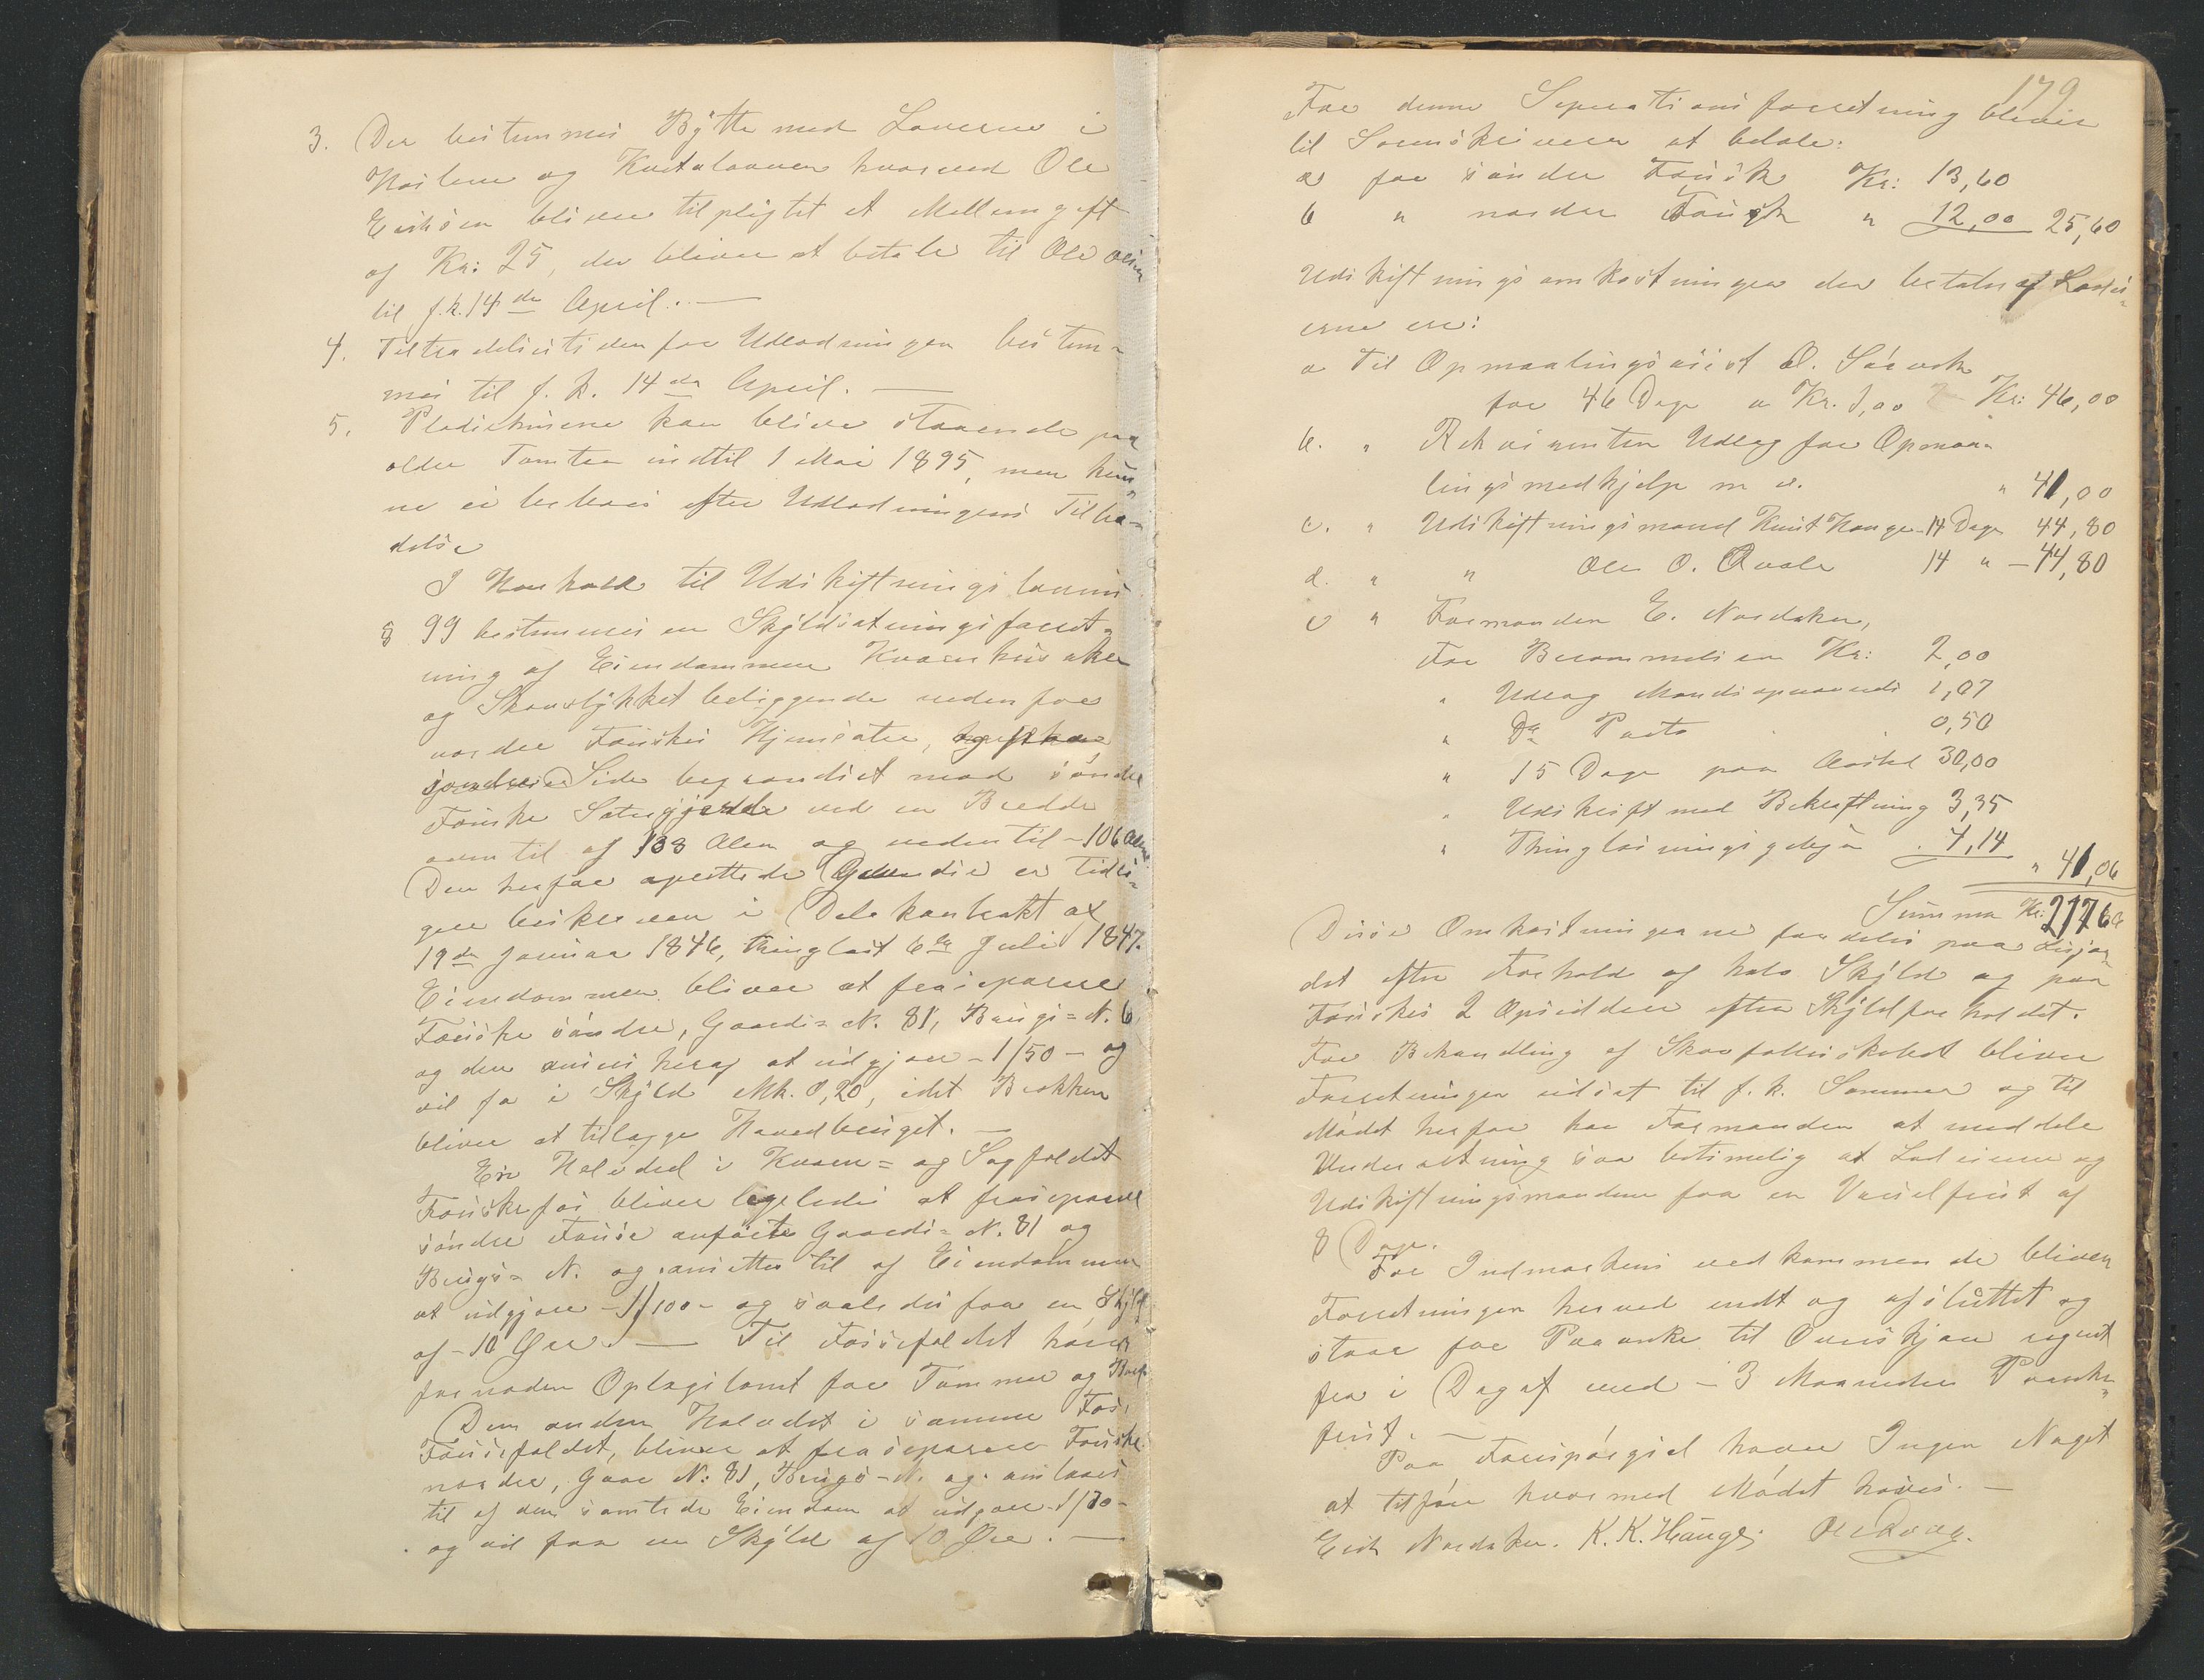 3. Der bestemmes Bytte med Laaerne i
og Kvatalaaven hvorved Ole
Eriksen bliver tilpligtet et Mellemgift
af Kr: 25, der bliver at betale til Ole Olsen
til f.k. 14de April. —
4. Tiltrædelsestiden for Udlodningen bestem-
mes til f. k. 14de April. —
5. Pladshusene kan blive staaende paa
ældre Tomter indtil 1 Mai 1895, men kun-
ne ei beboes efter Udlodningens Tiltræ-
delse
I Henhold til Udskiftningslovens
§ 99 bestemmes en Skyldsætningsforret-
ning af Eiendommen Kværnhusaker
og Skovstykket beliggende nedenfor
nordre Fauskes Hjemsæter,
Side begrændset mod söndre
Fauske Sætergjerde ved en Bredde
oventil af 133 Alen og nedentil - 106 Alen
Den herfor oprettede Grændse er tidli-
gere beskreven i Delekontrakt af
19de Januar 1846, thinglæst 6te Juli 1847.
Eiendommen bliver at fraseparere
Fauske söndre, Gaards- N. 81, Brugs- N. 6
og den ansees heraf at udgjöre - 1/50 - og
vil faa i Skyld Mk. 0,20, idet Bröken
bliver at tillægge Hovedbruget. —
En Halvdel i Kværn- og Sagfaldet
Fauskefos bliver ligeledes at fraseparere
söndre Fauske anförte Gaards- N. 81 og
Brugs- N. og ansættes til af Eiendommen
at udgjöre - 1/100 - og saaledes faa en Skyld
af - 10 Öre. — Til Fossefaldet hörer
fornöden Oplagstomt for Tömmer og Bord
Den anden Halvdel i samme Fos,
Fossefaldet, bliver at fraseparere Fauske
nordre, Gaar N: 81, Brugs- N. og anslaaes
til af den samlede Eiendom at udgjöre - 1/70 -
og vil faa en Skyld af 10 Öre. —
179
For denne Seperationsforretning bliver
til Sorenskriveren at betale:
a for söndre Fausk Kr: 13,60
b " nordre Fausk " 12,00 25,60
Udskiftningsomkostninger der betales af Lods-
erne ere:
a Til Opmaalingsassist O. Sörvok
for 46 Dage a Kr. 1,00 Kr: 46,00
b. " Rekvirenten Udlæg for Opmaa-
lingsmedhjelp m v. " 41,00
c. " Udskiftningsmand Knut Hauge 14 Dage 44,80
d. " " Ole O. Qvale 14 " - 44,80
e " Formanden E. Nordaker,
For Berammelsen Kr: 2,00
" Udlæg Mandsopnævnelse 1,07
" Do Porto 0,50
" 15 Dage paa Aastel 30,00
" Udskrift med Bekræftning 3,35
" Thinglæsningsgebyr . 4,14
" 41,06
Summa Kr: 217,66
Disse Omkostningerne fordeles paa
det efter Forhold af hele Skyld og paa
Fauskes 2 Opsiddere efter Skyldforholdet.
For Behandling af Skovfællesskabet bliver
Forretningen udsat til f. k. Sommer og til
Mödet herfor har Formanden at meddele
Underretning saa betimelig at Lodeierne og
Udskiftningsmændene faa en Varselfrist af
8 Dage.
For Indmarkens vedkommende bliver
Forretningen herved endt og afsluttet og
staar for Paaanke til Overskjön regnet
fra i Dag af med - 3 Maaneders Paaanke-
frist. —
Paa Forespörgsel havde Ingen Noget
at tilföie hvormed Mödet hæves. —
Erik Nordaker. K. K. Hauge. Ole Qvale.